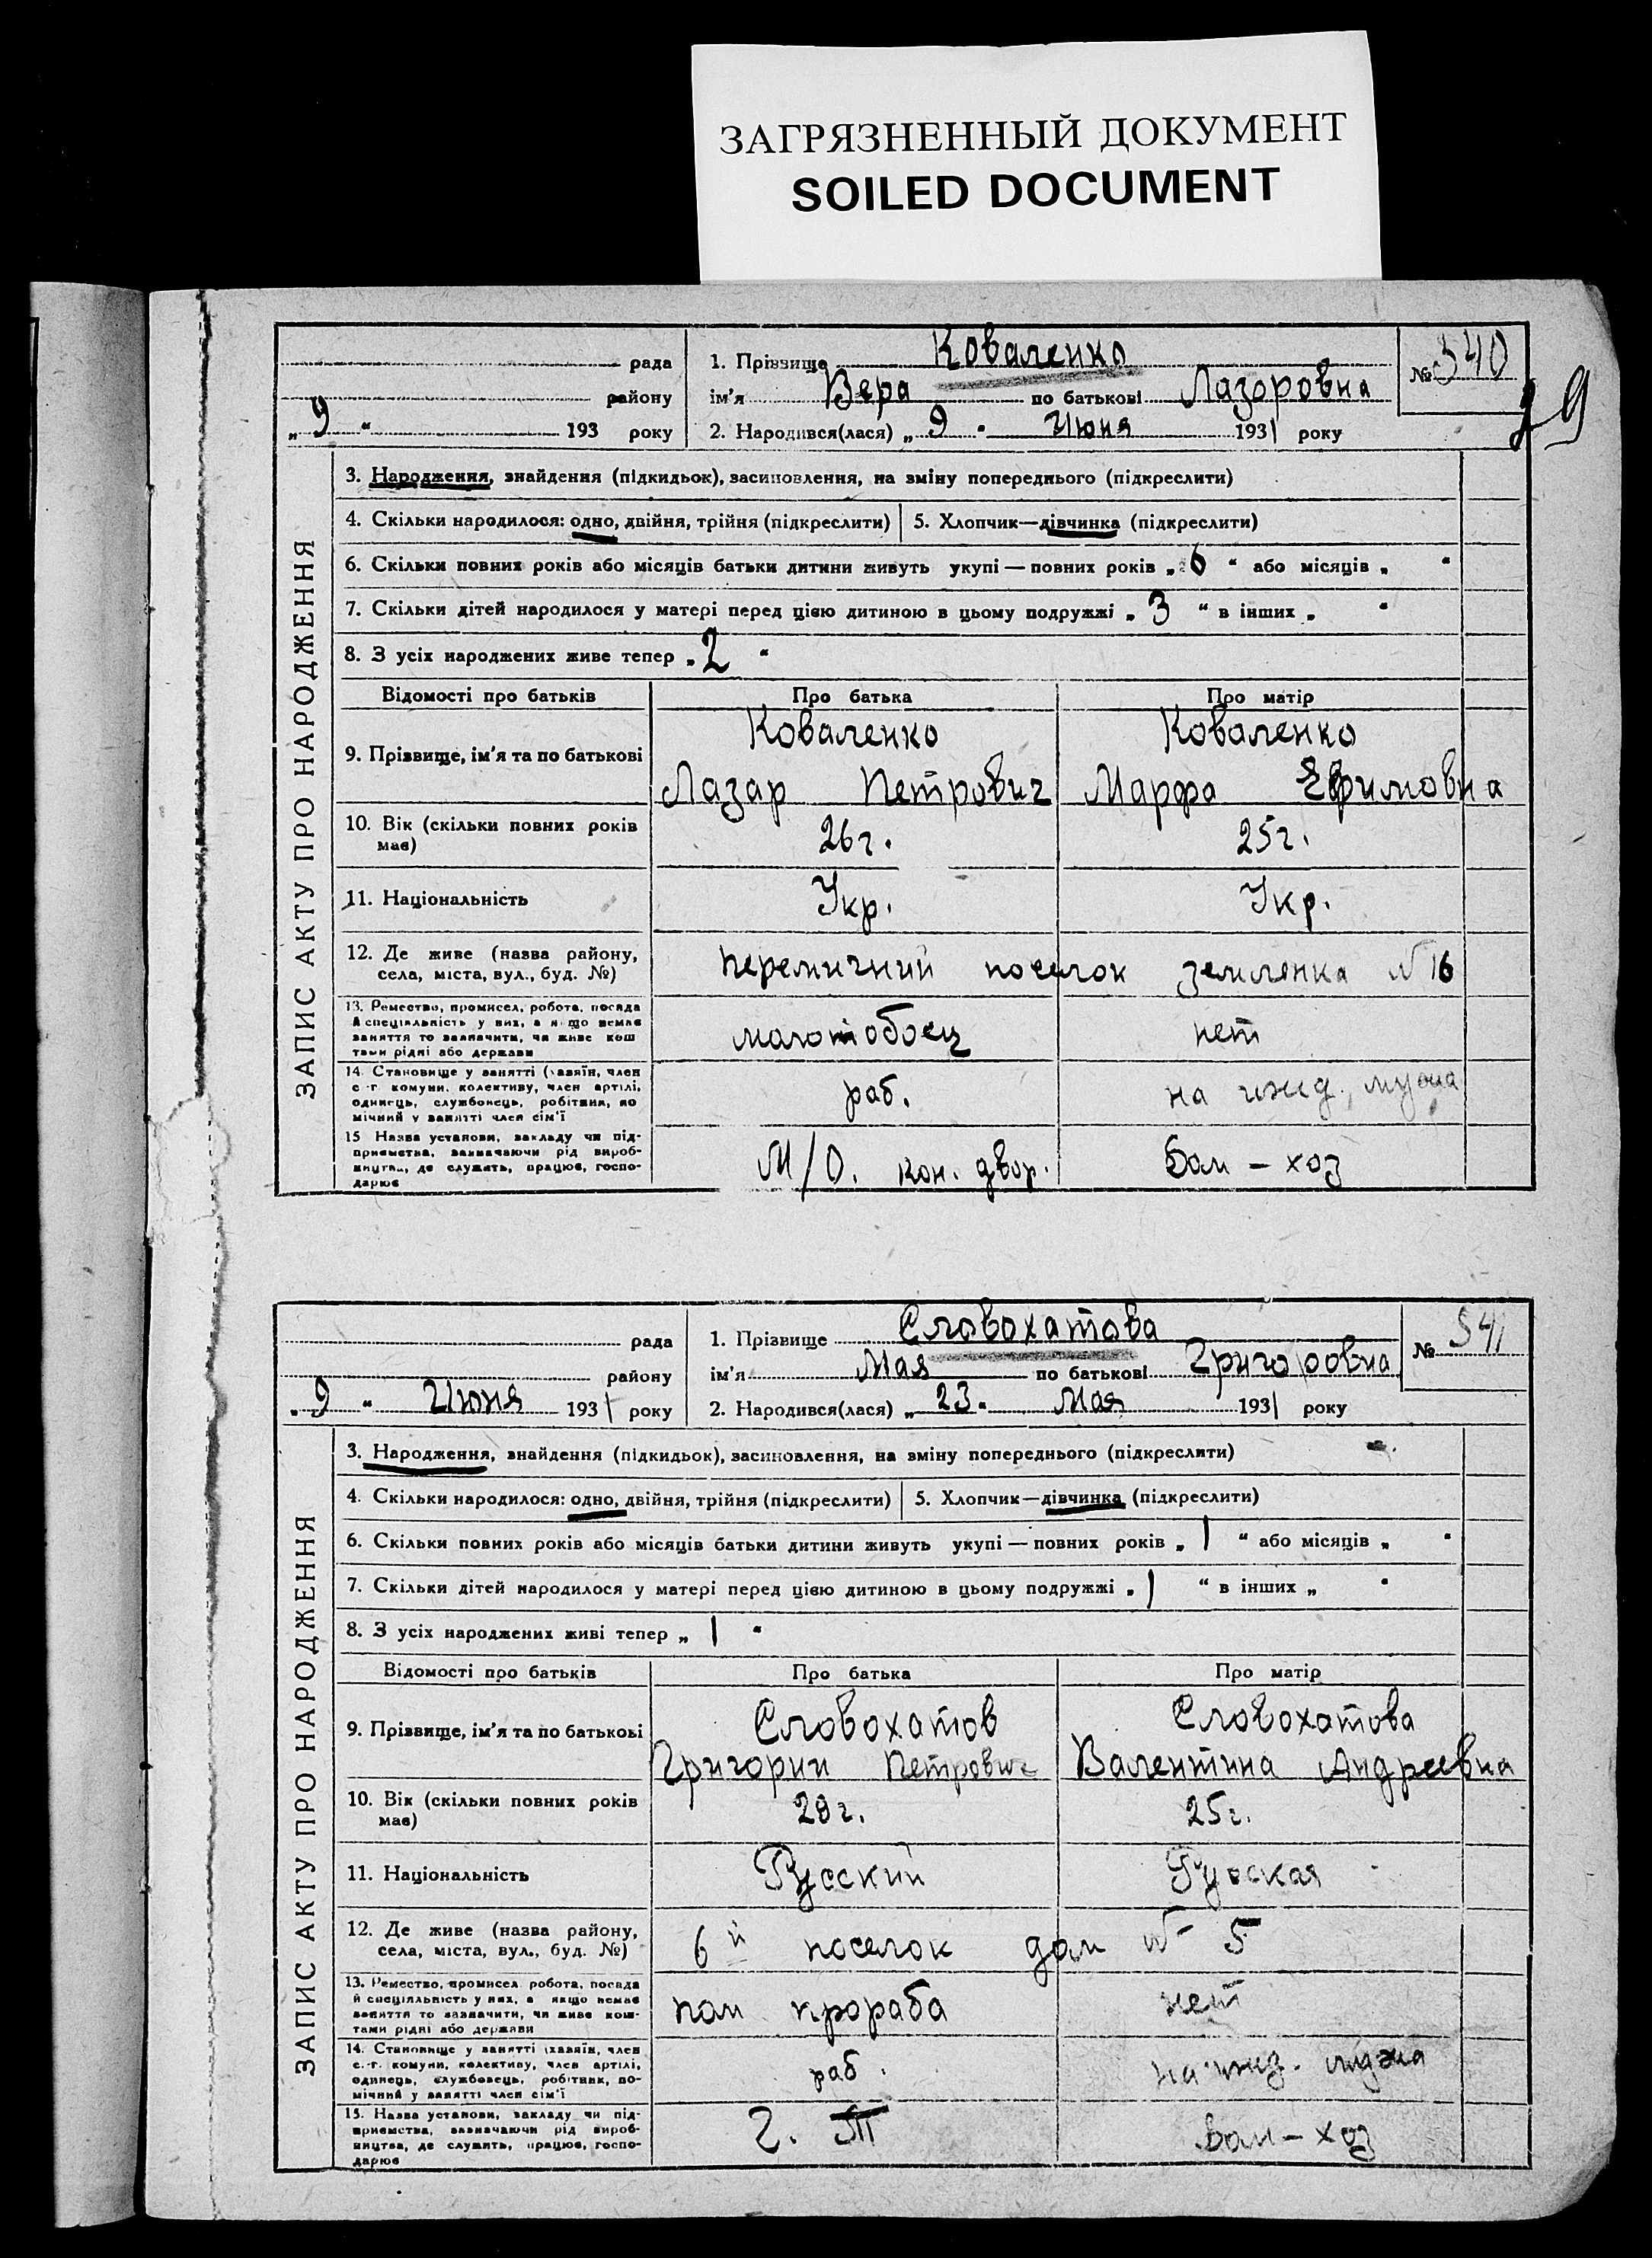 ЗАГРЯЗНЕННЫЙ ДОКУМЕНТ
SOILED DOCUMENT
29
ЗАПИС АКТУ ПРО НАРОДЖЕННЯ
рада
району
„ 9 “ 193 року
1. Прізвище Коваленко
ім'я Вера по батькові Лазоровна
2. Народився(лася) „ 9 “ Июня 1931 року
№ 340
3. Народження, знайдення (підкидьок), засиновлення, на зміну попереднього (підкреслити)
4. Скільки народилося: одно, двійня, трійня (підкреслити) 5. Хлопчик—дівчинка (підкреслити)
6. Скільки повних років або місяців батьки дитини живуть укупі — повних років „ 6 “ або місяців „ “
7. Скільки дітей народилося у матері перед цією дитиною в цьому подружжі „ 3 “ в інших „ “
8. З усіх народжених живе тепер „ 2 “
Відомості про батьків Про батька Про матір
9. Прізвище, ім'я та по батькові Коваленко Лазар Петрович Коваленко Марфа Ефимовна
10. Вік (скільки повних років має) 26 г. 25 г.
11. Національність Укр. Укр.
12. Де живе (назва району, села, міста, вул., буд. №) Перемичний поселок землянка № 16
13. Ремество, промисел, робота, посада й спеціяльність у них, а якщо немає заняття то зазначити, чи живе коштами рідні або держави молотобоец нет
14. Становище у занятті (хазяїн, член с.-г. комуни, колективу, член артілі, одинець, службовець, робітник, помічний у занятті член сім'ї раб. на ижд. мужа
15. Назва установи, закладу чи підприємства, зазначаючи рід виробництва, де служить, працює, господарює М/О. кон. двор. Дом – хоз
ЗАПИС АКТУ ПРО НАРОДЖЕННЯ
рада
району
„ 9 “ Июня 1931 року
1. Прізвище Словохатова
ім'я Мая по батькові Григоровна
2. Народився(лася) „ 23 “ Мая 1931 року
№ 341
3. Народження, знайдення (підкидьок), засиновлення, на зміну попереднього (підкреслити)
4. Скільки народилося: одно, двійня, трійня (підкреслити) 5. Хлопчик—дівчинка (підкреслити)
6. Скільки повних років або місяців батьки дитини живуть укупі — повних років „ 1 “ або місяців „ “
7. Скільки дітей народилося у матері перед цією дитиною в цьому подружжі „ 1 “ в інших „ “
8. З усіх народжених живі тепер „ 1 “
Відомості про батьків Про батька Про матір
9. Прізвище, ім'я та по батькові Словохатов Григории Петрович Словохатова Валентина Андреевна
10. Вік (скільки повних років має) 29 г. 25 г.
11. Національність Русский Руская
12. Де живе (назва району, села, міста, вул., буд. №) 6й поселок дом № 5
13. Ремество, промисел, робота, посада й спеціяльність у них, а якщо немає заняття то зазначити, чи живе коштами рідні або держави пом прораба нет
14. Становище у занятті (хазяїн, член с.-г. комуни, колективу, член артілі, одинець, службовець, робітник, помічний у занятті член сім'ї раб. на ижд. мужа
15. Назва установи, закладу чи підприємства, зазначаючи рід виробництва, де служить, працює, господарює дом – хоз